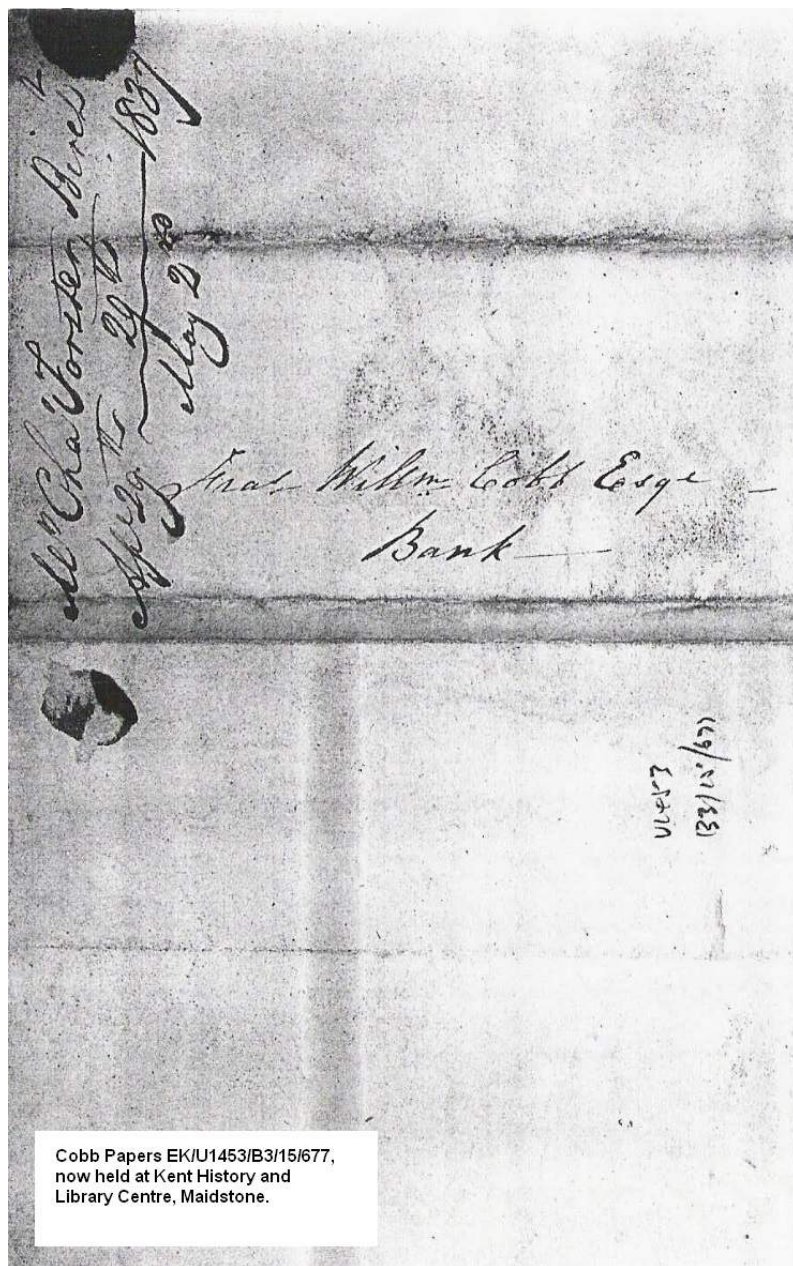 Mr Chas Forster
Apl 29th 29th 1837
May 2nd
Fras Willm Cobb Esqe
Bank
U1453
B3/15/677
Cobb Papers EK/U1453/B3/15/677,
now held at Kent History and
Library Centre, Maidstone.